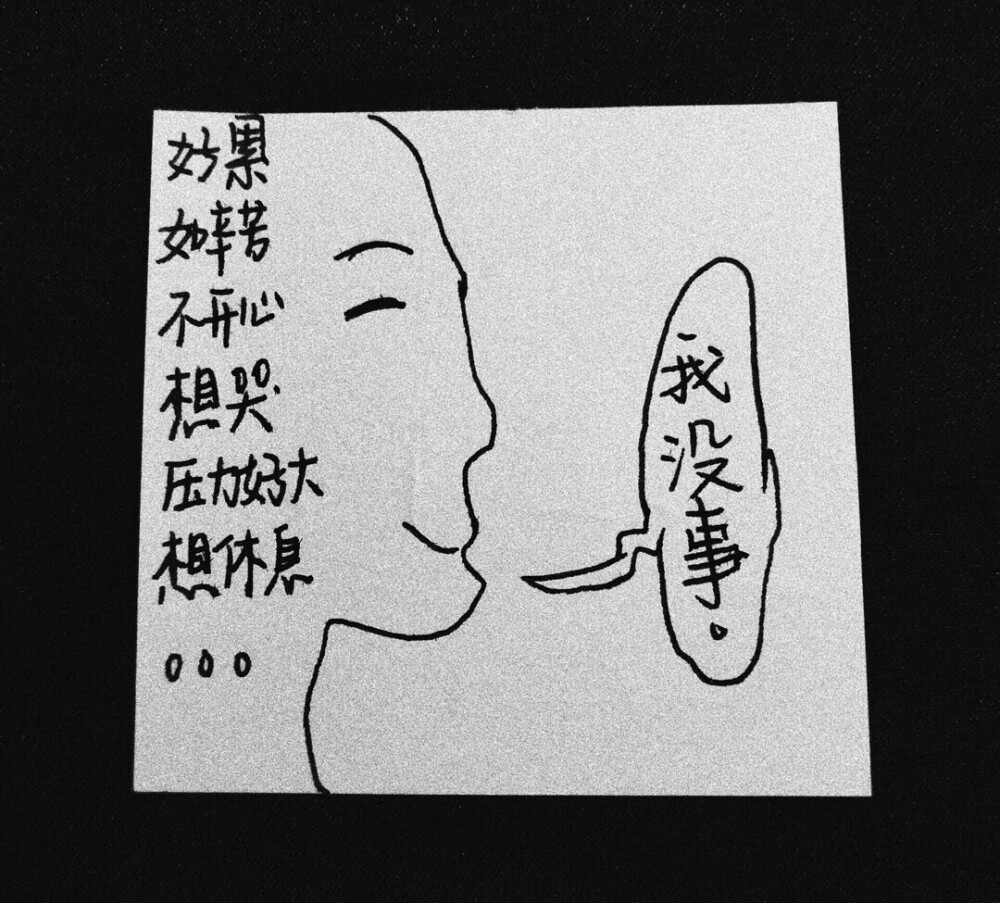 好累
好辛苦
不开心
想哭
压力好大
想休息
。。。
我没事。